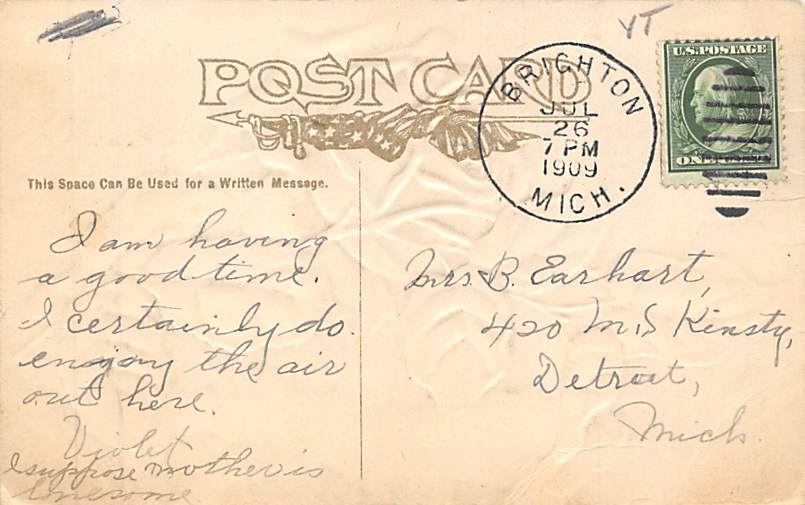 VT
POST CARD
BRIGHTON
JUL
26
7 PM
1909
MICH.
U.S. POSTAGE
ONE
This Space Can Be Used for a Written Message.
I am having
a good time.
I certainly do
enjoy the air
out here.
Violet
I suppose Mother is
lonesome
Mrs. B. Earhart,
420 M. S
Detroit,
Mich.